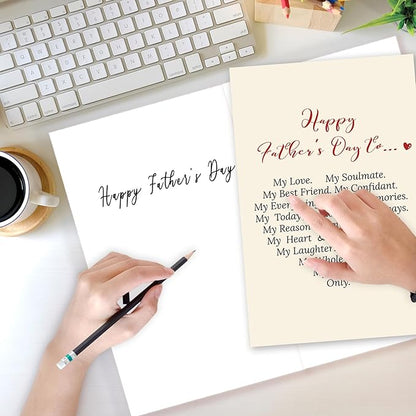 Happy Father's Day
Happy
Father's Day to...
My Love. My Soulmate.
My Best Friend. My Confidant.
My Memories.
My Today
My Reason
My Heart &
My Laughter
Only.